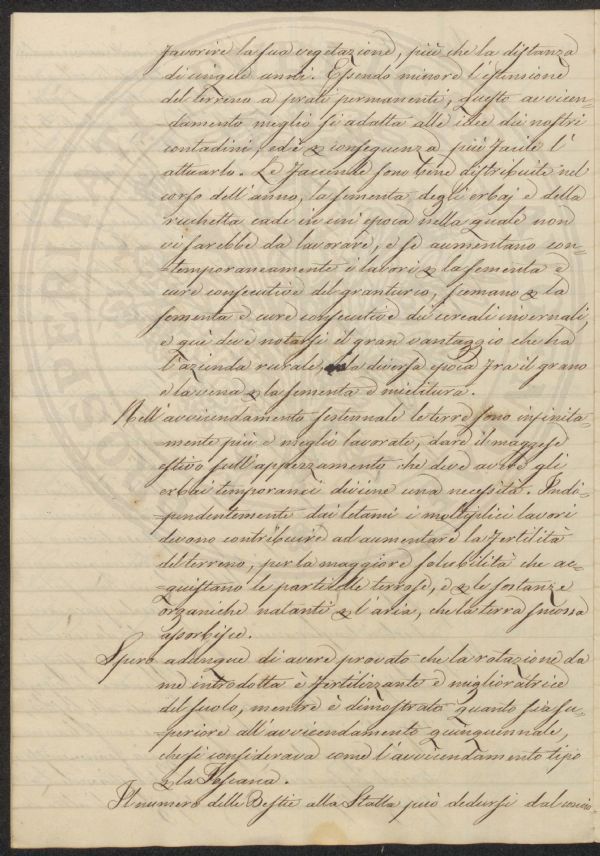 favorire la sua vegetazione, più che la distanza
di cinque anni. Essendo minore l'estensione
del terreno a prati permanenti, questo avvicen=
=damento meglio si adatta alle idee dei nostri
contadini, ed è p conseguenza più facile l'
attuarlo. Le faccende sono bene distribuite nel
corso dell'anno, la sementa degli erbaj e della
ruchetta cade in un'epoca nella quale non
vi sarebbe da lavorare, e se aumentano con=
=temporaneamente i lavori p la sementa e
cure consecutive del granturco, scemano p la
sementa e cure consecutive dei cereali invernali,
e qui deve notarsi il gran vantaggio che ha
l'azienda rurale, la diversa epoca fra il grano
e la vena p la sementa e mietitura.
Nell'avvicendamento settennale le terre sono infinita=
=mente più e meglio lavorate, dare il maggese
estivo sull'appezzamento che deve avere gli
erbai temporanei diviene una necessità. Indi=
=pendentemente dai letami i moltiplici lavori
devono contribuire ad aumentare la fertilità
del terreno, per la maggiore solubilità che ac=
=quistano le particelle terrose, e p le sostanze
organiche natanti p l'aria, che la terra smossa
assorbisce.
Spero adunque di avere provato che la rotazione da
me introdotta è fertilizzante e miglioratrice
del suolo, mentre è dimostrato quanto sia su=
=periore all'avvicendamento quinquennale,
che si considerava come l'avvicendamento tipo
p la Toscana.
Il numero delle Bestie alla Stalla può dedursi dal